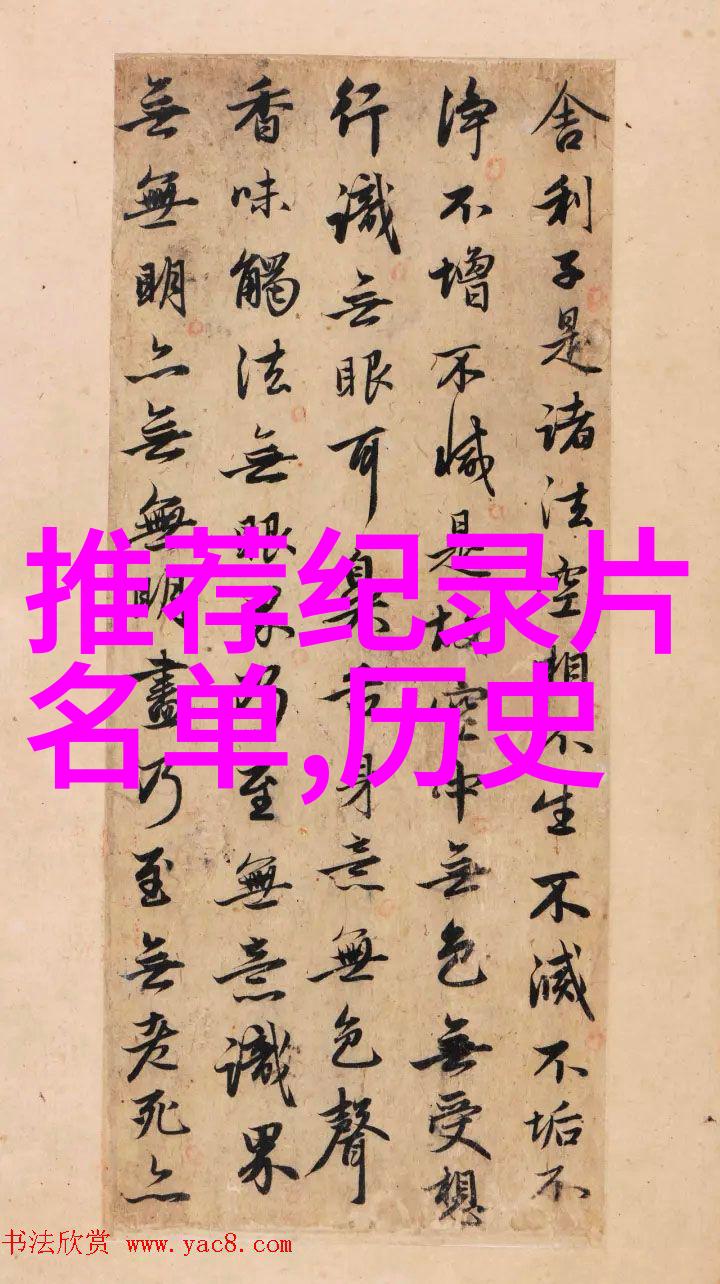 舍利子是諸法空相不生不滅不垢不
淨不增不減是故空中無色無受想
行識无眼耳鼻舌身意無色聲
香味觸法無眼界乃至無意識界
無無明亦無無明盡乃至無老死亦
推荐纪录片
名单,历史
书法欣赏 www.yac8.com